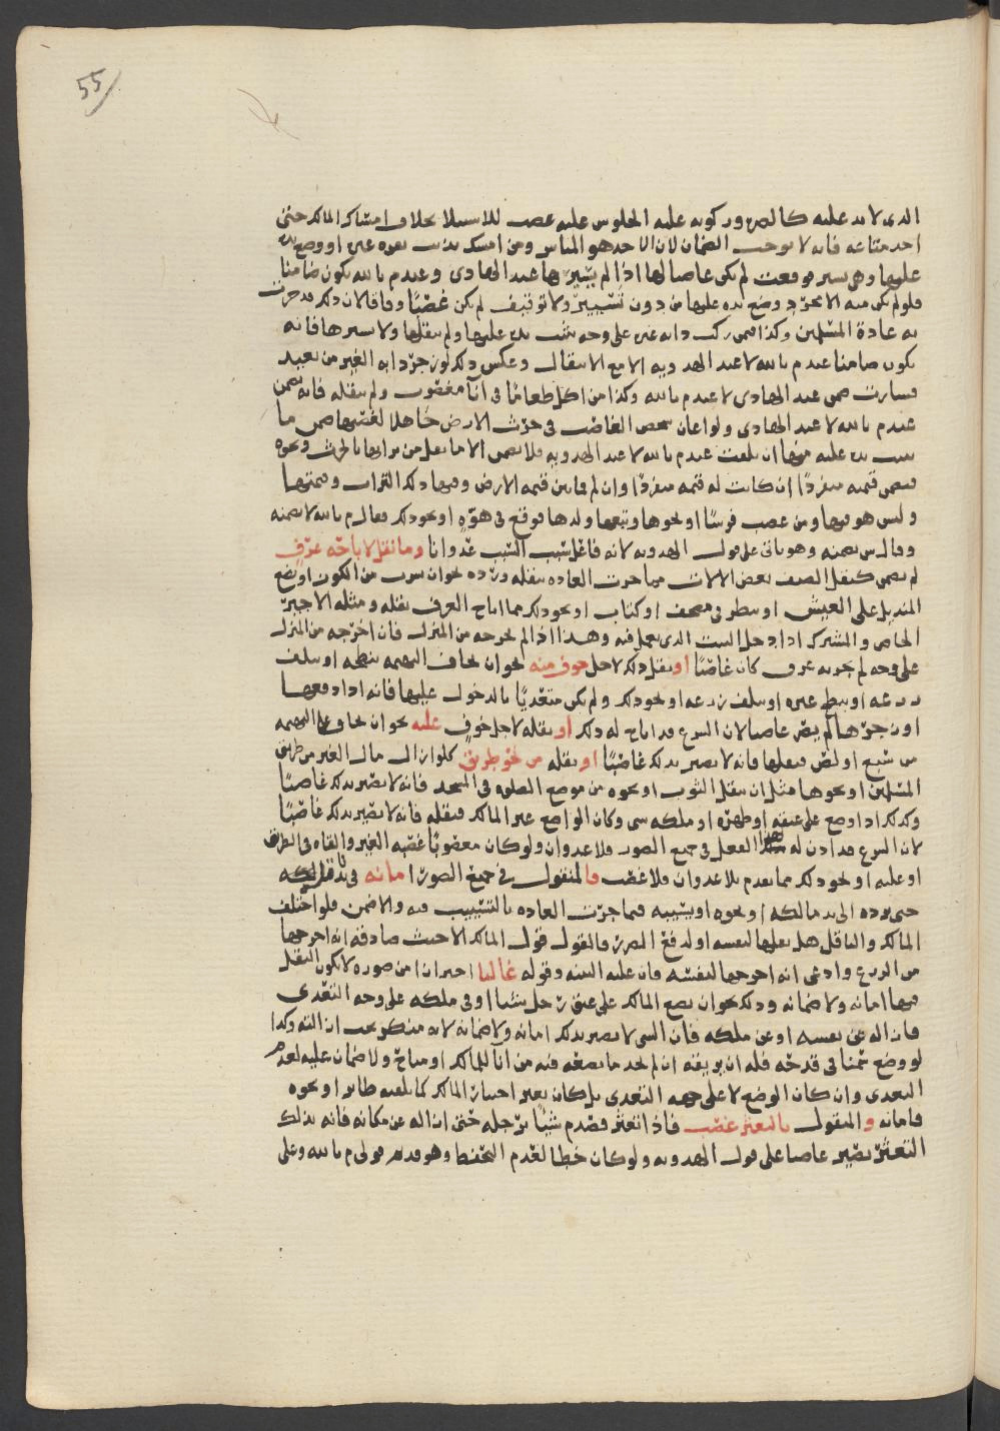 55
الذي لا يد عليه كالصر وركوبه عليه الجلوس عليه غصب للاستيلا بخلاف امساك المالك حتى
اخذ متاعه فانه لا يوجب الضمان لان الاخذ هو المباشر ومن امسك بذنب بقره غيره او وضع يده
عليها وهي تسير فوقعت لم يكن غاصبا لها اذا لم يسيرها عند الهادي وعند م بالله يكون ضامنا
فلو لم يكن منه الا مجرد وضع يده عليها من دون تسيير ولا توقيف لم يكن غصبا وفاقا لان ذلك قد جرت
به عادة المسلمين وكذا فيمن ركب دابه غيره على وجه يثبت يده عليها ولم ينقلها ولا سيرها فانه
يكون ضامنا عند م بالله لا عند الهدويه الا مع الانتقال وعكس ذلك لو زجر دابه الغير من بعيد
فسارت ضمن عند الهادي لا عند م بالله وكذا من اكل طعاما في انا مغصوب ولم ينقله فانه يضمن
عند م بالله لا عند الهادي ولو اعان شخص الغاصب في حرث الارض جاهلا لغصبها ضمن ما
ثبت يده عليه منها ان تلفت عند م بالله لا عند الهدويه فلا يضمن الا ما نقل من ترابها بالحرث ونحوه
فيضمن قيمته منفردا ان كانت له قيمه منفردا وان لم فما بين قيمه الارض وفيها ذلك التراب وقيمتها
وليس هو فيها ومن غصب فرسا او نحوها وتبعها ولدها فوقع في هوه او نحو ذلك فقال م بالله لا يضمنه
وقال س يضمنه وهو ياتي على قول الهدويه لانه فاعل سبب السبب عدوانا وما نقل لاباحه عرف
لم يضمن كنقل الضيف بعض الالات مما جرت العاده بنقله ورده نحو ان يشرب من الكوز او يضع
المنديل على العيش او ينظر في مصحف او كتاب او نحو ذلك مما اباح العرف نقله ومثله الاجير
الخاص والمشترك اذا دخل البيت الذي يعمل فيه وهذا اذا لم يخرجه من المنزل فان اخرجه من المنزل
على وجه لم يجر به عرف كان غاصبا او نقل ذلك لاجل خوف منه نحو ان يخاف البهيمه تنطحه او تتلف
زرعه او ينطح غيره او يتلف زرعه او نحو ذلك ولم يكن متعديا بالدخول عليها فانه اذا دفعها
او زجرها لم يصر غاصبا لان الشرع قد اباح له ذلك او نقله لاجل خوف عليه نحو ان يخاف على البهيمه
من سبع او لص فنقلها فانه لا يصير بذلك غاصبا او نقله من نحو طريق كلو ازال مال الغير من طريق
المسلمين او نحوها مثل ان ينقل الثوب او نحوه من موضع الصلوه في المسجد فانه لا يصير بذلك غاصبا
وكذلك اذا وضع على عنقه او ظهره او ملكه شي وكان الواضع غير المالك فنقله فانه لا يصير بذلك غاصبا
لان الشرع قد اذن له بهذا الفعل في جميع الصور فلا عدوان ولو كان مغصوبا غصبه الغير والقاه في الطريق
او عليه او نحو ذلك مما تقدم بلا عدوان فلا غصب فالمنقول في جميع الصور امانه في يد ناقله
حتى يرده الى يد مالكه او نحوه او يسيبه فيما جرت العاده بالتسييب فيه والا ضمن فلو اختلف
المالك والناقل هل نقلها لنفسه او لدفع الضرر فالقول قول المالك الا حيث صادفته انه اخرجها
من الزرع وادعى انه اخرجها لنفسه فان عليه البينه وقوله غالبا احترازا من صوره لا يكون النقل
فيها امانه ولا ضمانه وذلك نحو ان يضع المالك على عنق رجل شيئا او في ملكه على وجه التعدي
فازاله عن نفسه او عن ملكه فان الشي لا يصير بذلك امانه ولا ضمانه لانه منكر يجب ازالته وكذا
لو وضع سمنا في قدحه فله ان يريقه ان لم يجد ما يضعه فيه من انا للمالك او مباح ولا ضمان عليه لعدم
التعدي وان كان الوضع لا على جهه التعدي بل كان بغير اختيار المالك كما يلقيه طاير او نحوه
فامانه والمنقول بالتعثر غصب فاذا تعثر فصدم شيئا برجله حتى ازاله عن مكانه فانه بذلك
التعثر يصير غاصبا على قول الهدويه ولو كان خطا لعدم التحفظ وهو قديم قولي م بالله وعلى